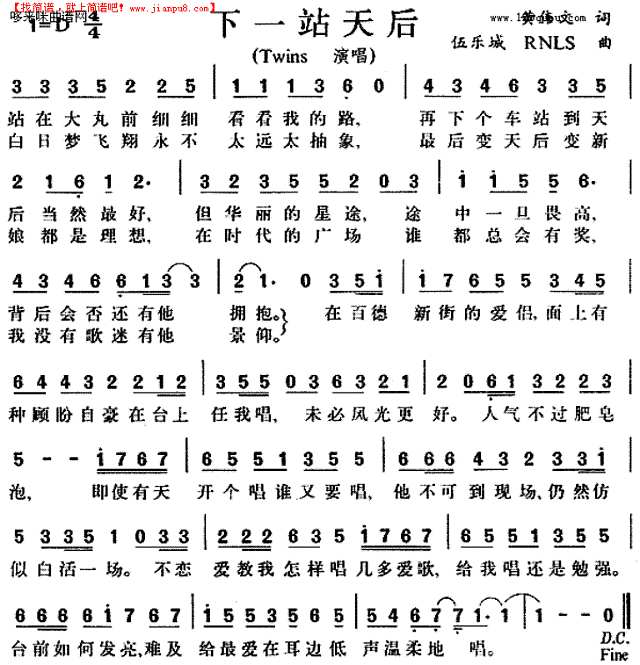 哆来咪曲谱网
【找简谱，就上简谱吧！www.jianpu8.com】
1=D 4/4
下一站天后
(Twins 演唱)
黄伟文 词
伍乐城 RNLS 曲
3 3 3 5 2 2 5 | 1 1 1 3 6 0 | 4 3 4 6 3 3 5
站在大丸前细细 看看我的路, 再下个车站到天
白日梦飞翔永不 太远太抽象, 最后变天后变新
2 1 6 1 2· | 3 2 3 5 5 2 0 3 | i i 5 5 6·
后当然最好, 但华丽的星途, 途 中一旦畏高,
娘都是理想, 在时代的广场 谁 都总会有奖,
4 3 4 6 6 1 3 3 | 2 1· 0 3 5 i | 1 7 6 5 5 3 4 5
背后会否还有他 拥抱。 在百德 新街的爱侣,面上有
我没有歌迷有他 景仰。
6 4 4 3 2 2 1 2 | 3 5 5 0 3 6 3 2 1 | 2 0 6 1 3 2 2 3
种顾盼自豪在台上 任我唱, 未必风光更 好。人气不过肥皂
5 - - i 7 6 7 | 6 5 5 1 3 5 5 | 6 6 6 4 3 2 3 3 1
泡, 即使有天 开个唱谁又要唱, 他不可到现场,仍然仿
5 3 3 5 1 0 3 3 | 2 2 2 6 3 5 i 7 6 7 | 6 5 5 1 3 5 5
似白活一场。不恋 爱教我怎样唱几多爱歌, 给我唱还是勉强。
6 6 6 6 i 7 6 7 | 1 5 5 3 5 6 5 | 5 4 5 6 7 7 1· 1 | 1 - - 0 ‖
台前如何发亮,难及 给最爱在耳边低 声温柔地 唱。
D.C.
Fine